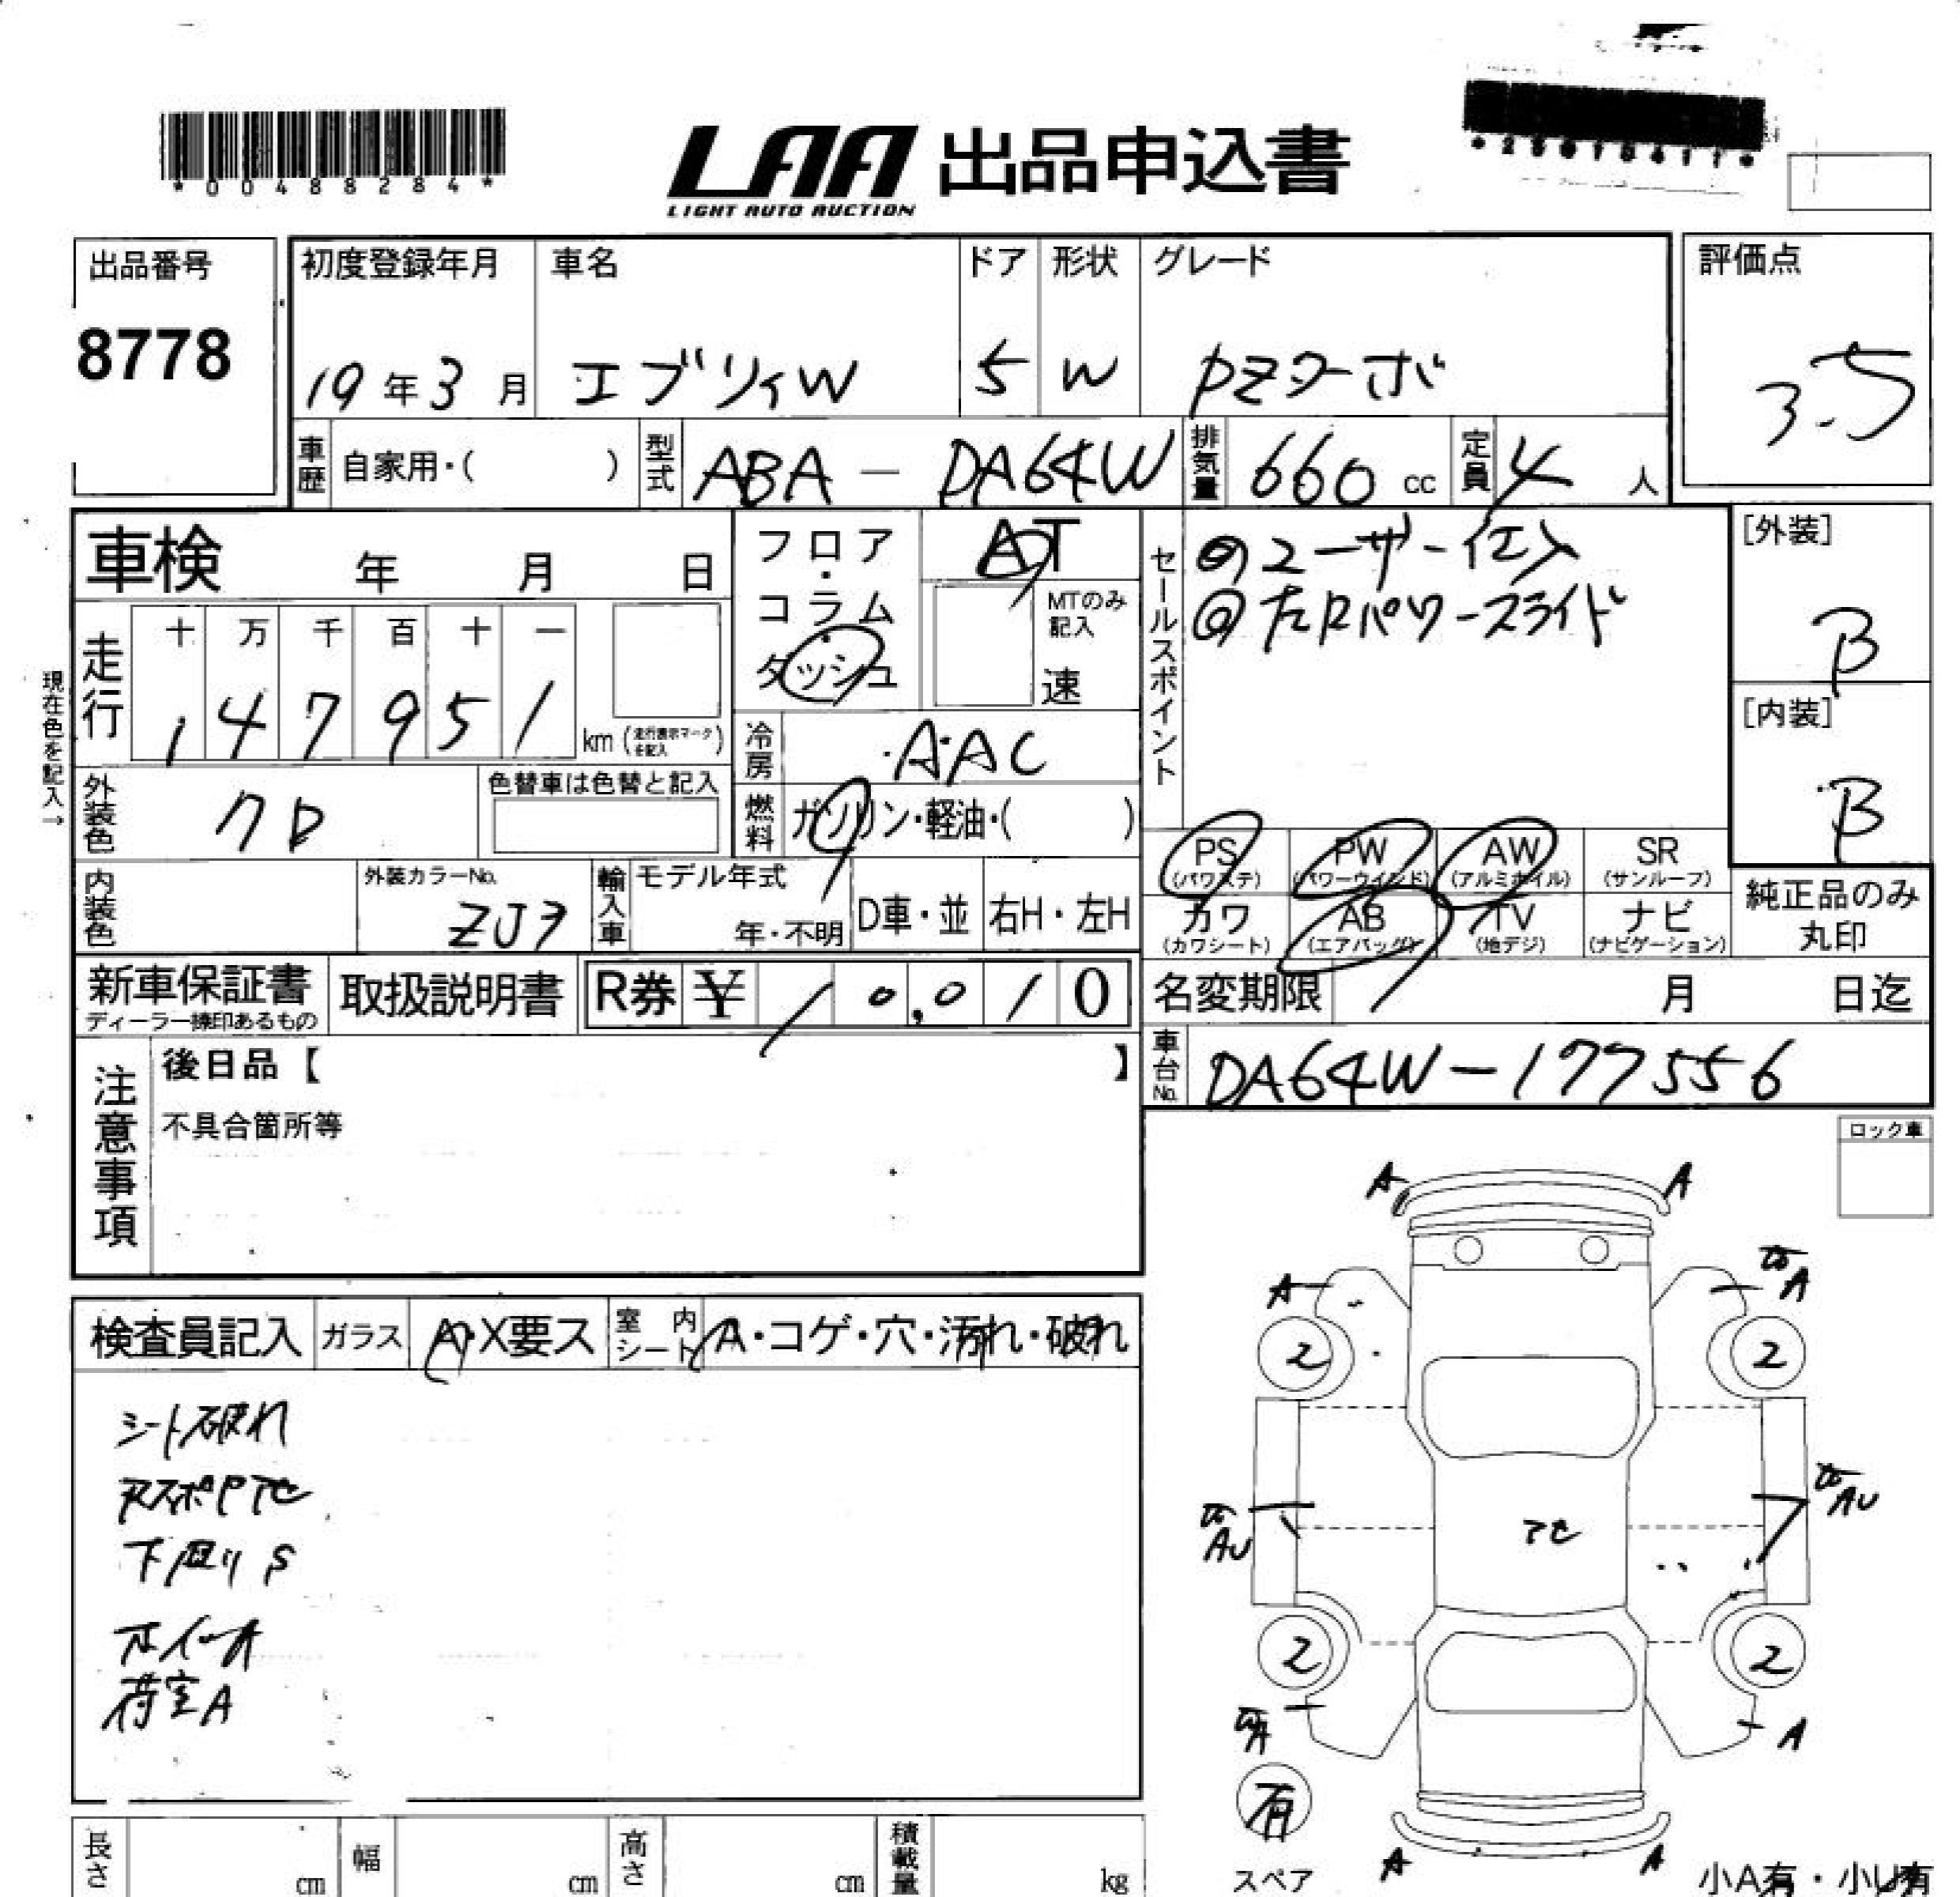 *00488284*
LAA 出品申込書
LIGHT AUTO AUCTION
出品番号
8778
初度登録年月
19年3月
車名
エブリィW
ドア
5
形状
W
グレード
PZターボ
評価点
3.5
車歴
自家用・( )
型式
ABA-DA64W
排気量
660 cc
定員
4人
車検 年 月 日
フロア・コラム・ダッシュ
AT
MTのみ記入
速
セールスポイント
◎ユーザー仕入
◎左Rパワースライド
[外装]
B
[内装]
B
走行
十 万 千 百 十 一
1 4 7 9 5 1
km (走行表示マークを記入)
現在色を記入→
冷房
AAC
外装色
クロ
色替車は色替と記入
燃料
ガソリン・軽油・( )
PS (パワステ)
PW (パワーウインド)
AW (アルミホイル)
SR (サンルーフ)
カワ (カワシート)
AB (エアバッグ)
TV (地デジ)
ナビ (ナビゲーション)
純正品のみ丸印
内装色
外装カラーNo.
ZJ3
輸入車
モデル年式
年・不明
D車・並
右H・左H
新車保証書
ディーラー捺印あるもの
取扱説明書
R券 ¥ 10,010
名変期限 月 日迄
車台No.
DA64W-177556
注意事項
後日品【 】
不具合箇所等
ロック車
検査員記入
ガラス
A・X要ス
室内シート
A・コゲ・穴・汚れ・破れ
シート破れ
下廻りS
荷室A
A A
A
A
2 2
AU
AU
2 2
A
A
有
スペア
A A
小A有・小U有
長さ cm
幅 cm
高さ cm
積載量 kg